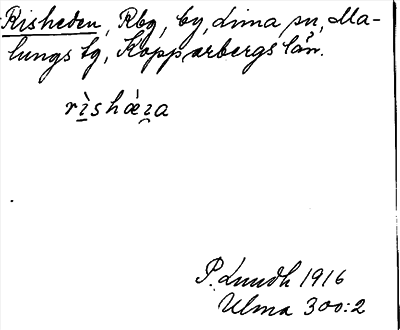 Risheden, Rbg, by, Lima sn, Ma-
lungs tg, Kopparbergs län.
rı̀shǽıa
P. Lundh 1916
Ulma 300:2